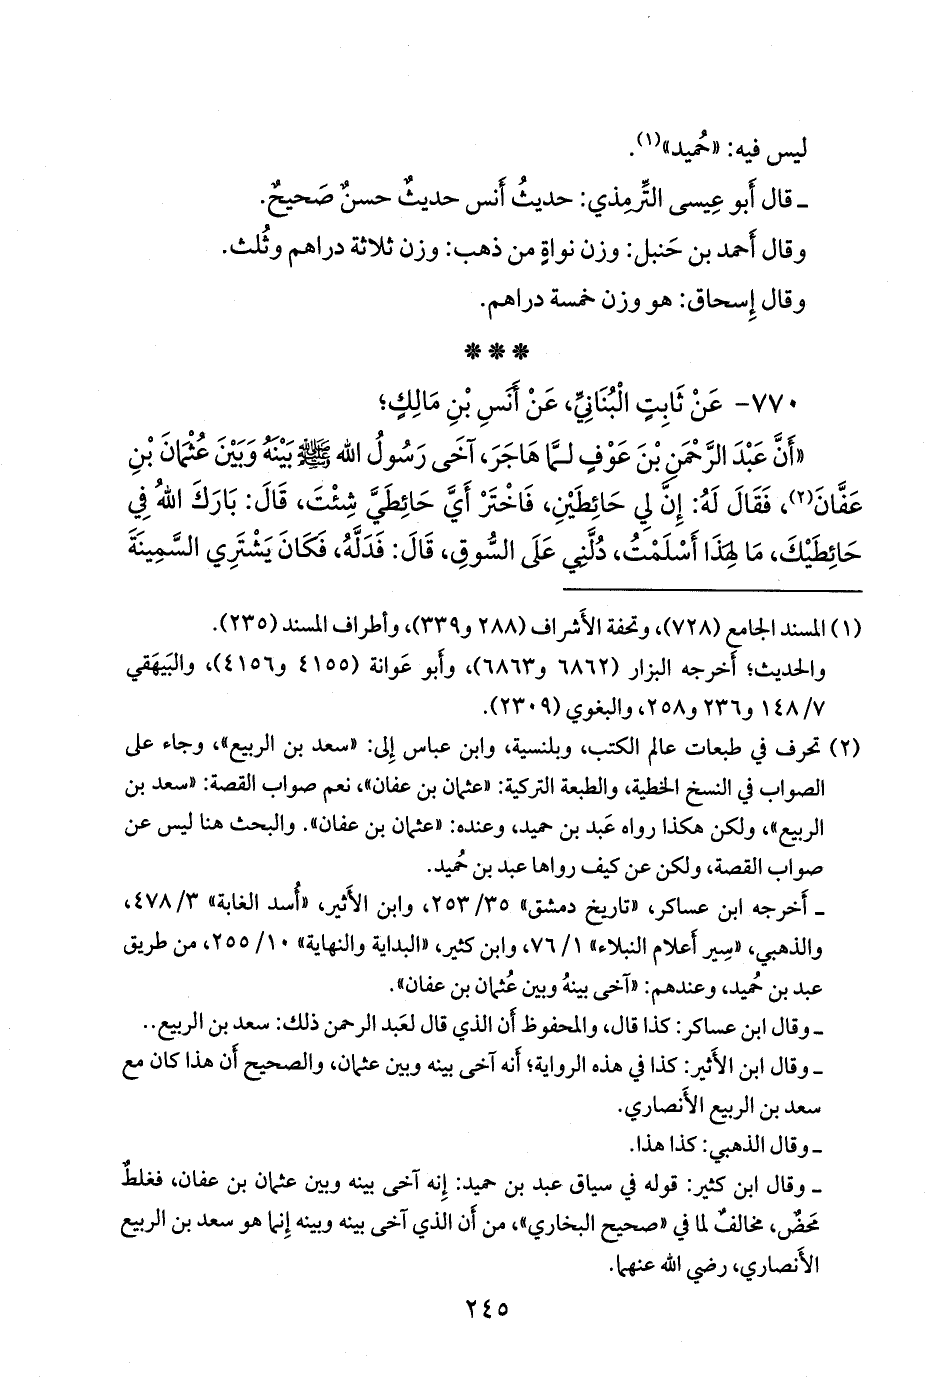 ليس فيه: «حُميد»(١).
ـ قال أَبو عِيسى التِّرمِذي: حديثُ أَنس حديثٌ حسنٌ صَحيحٌ.
وقال أَحمد بن حَنبل: وزن نواةٍ من ذهب: وزن ثلاثة دراهم وثُلث.
وقال إِسحاق: هو وزن خمسة دراهم.
***
٧٧٠- عَنْ ثَابِتٍ الْبُنَانِيِّ، عَنْ أَنَسِ بْنِ مَالِكٍ؛
«أَنَّ عَبْدَ الرَّحْمَنِ بْنَ عَوْفٍ لَـمَّا هَاجَرَ، آخَى رَسُولُ اللهِ ﷺ بَيْنَهُ وَبَيْنَ عُثْمَانَ بْنِ
عَفَّانَ(٢)، فَقَالَ لَهُ: إِنَّ لِي حَائِطَيْنِ، فَاخْتَرْ أَيَّ حَائِطَيَّ شِئْتَ، قَالَ: بَارَكَ اللهُ فِي
حَائِطَيْكَ، مَا لِهَذَا أَسْلَمْتُ، دُلَّنِي عَلَى السُّوقِ، قَالَ: فَدَلَّهُ، فَكَانَ يَشْتَرِي السَّمِينَةَ
(١) المسند الجامع (٧٢٨)، وتحفة الأَشراف (٢٨٨ و٣٣٩)، وأَطراف المسند (٢٣٥).
والحديث؛ أَخرجه البزار (٦٨٦٢ و٦٨٦٣)، وأَبو عَوانة (٤١٥٥ و٤١٥٦)، والبَيهَقي
٧/ ١٤٨ و٢٣٦ و٢٥٨، والبغوي (٢٣٠٩).
(٢) تحرف في طبعات عالم الكتب، وبلنسية، وابن عباس إِلى: «سعد بن الربيع»، وجاء على
الصواب في النسخ الخطية، والطبعة التركية: «عثمان بن عفان»، نعم صواب القصة: «سعد بن
الربيع»، ولكن هكذا رواه عَبد بن حميد، وعنده: «عثمان بن عفان». والبحث هنا ليس عن
صواب القصة، ولكن عن كيف رواها عبد بن حُميد.
ـ أَخرجه ابن عساكر، «تاريخ دمشق» ٣٥/ ٢٥٣، وابن الأَثير، «أُسد الغابة» ٣/ ٤٧٨،
والذهبي، «سِير أَعلام النبلاء» ١/ ٧٦، وابن كثير، «البداية والنهاية» ١٠/ ٢٥٥، من طريق
عبد بن حُميد، وعندهم: «آخى بينهُ وبين عُثمان بن عفان».
ـ وقال ابن عساكر: كذا قال، والمحفوظ أَن الذي قال لعَبد الرحمن ذلك: سعد بن الربيع..
ـ وقال ابن الأَثير: كذا في هذه الرواية؛ أَنه آخى بينه وبين عثمان، والصحيح أَن هذا كان مع
سعد بن الربيع الأَنصاري.
ـ وقال الذهبي: كذا هذا.
ـ وقال ابن كثير: قوله في سياق عبد بن حميد: إِنه آخى بينه وبين عثمان بن عفان، فغلطٌ
مَحَضٌ، مخالفٌ لما في «صحيح البخاري»، من أَن الذي آخى بينه وبينه إِنما هو سعد بن الربيع
الأَنصاري، رضي الله عنهما.
٢٤٥